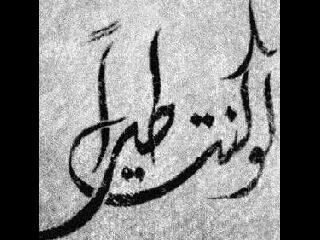 لو كنت طيراً